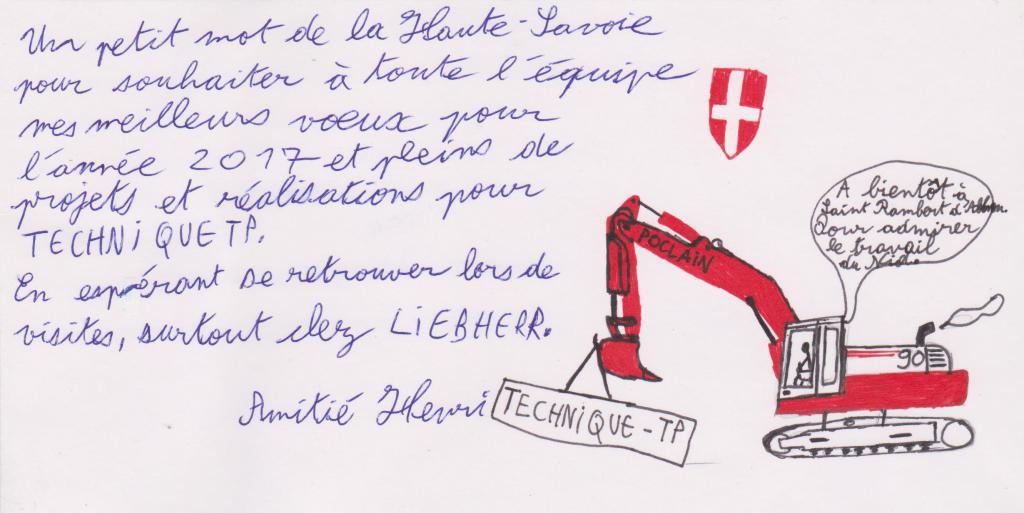 Un petit mot de la Haute-Savoie
pour souhaiter à toute l'équipe
mes meilleurs voeux pour
l'année 2017 et pleins de
projets et réalisations pour
TECHNiQUE TP.
En espérant se retrouver lors de
visites, surtout chez LiEBHERR.
Amitié Henri
A bientôt à
Saint Rambert d'Albon
Pour admirer
le travail
du
POCLAiN
90
TECHNiQUE-TP